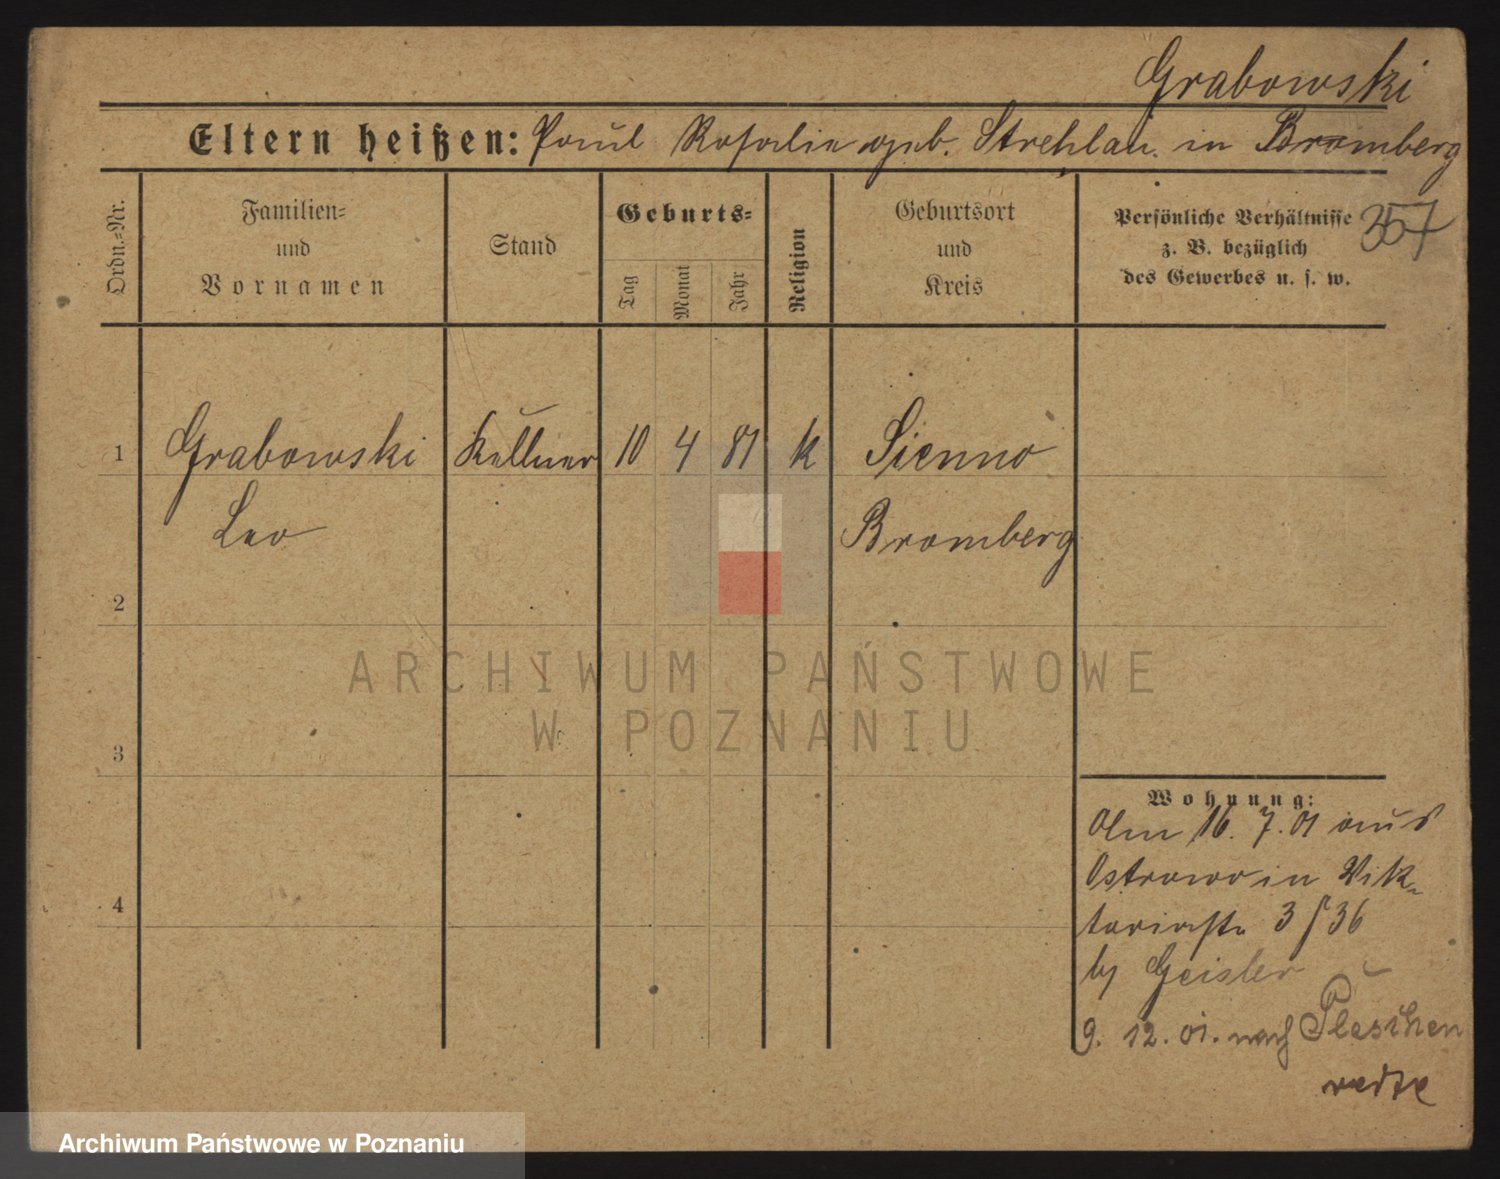 Grabowski
Eltern heißen: Paul Rosalie geb. Strehlau. in Bromberg
Ordn.-Nr.
Familien-
und
Vornamen
Stand
Geburts-
Tag
Monat
Jahr
Religion
Geburtsort
und
Kreis
Persönliche Verhältnisse
z. B. bezüglich
des Gewerbes u. s. w.
357
1 Grabowski Kellner 10 4 81 k Sienno
Leo Bromberg
2
3
4
Wohnung:
Am 16. 7. 01 aus
Ostrowo in Vik-
toriastr 3/36
by Geisler
9. 12. 01. nach Pleschen
ARCHIWUM PAŃSTWOWE
W POZNANIU
Archiwum Państwowe w Poznaniu